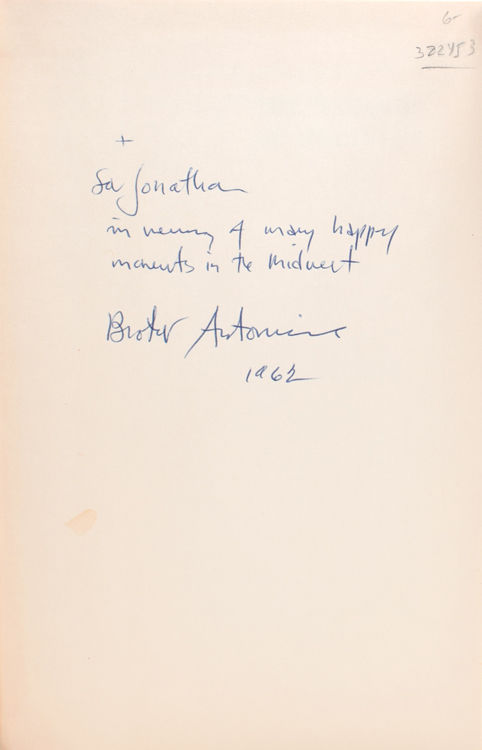 6-
322453
+
For Jonathan
in memory of many happy
moments in the Midwest
Brother Antoninus
1962